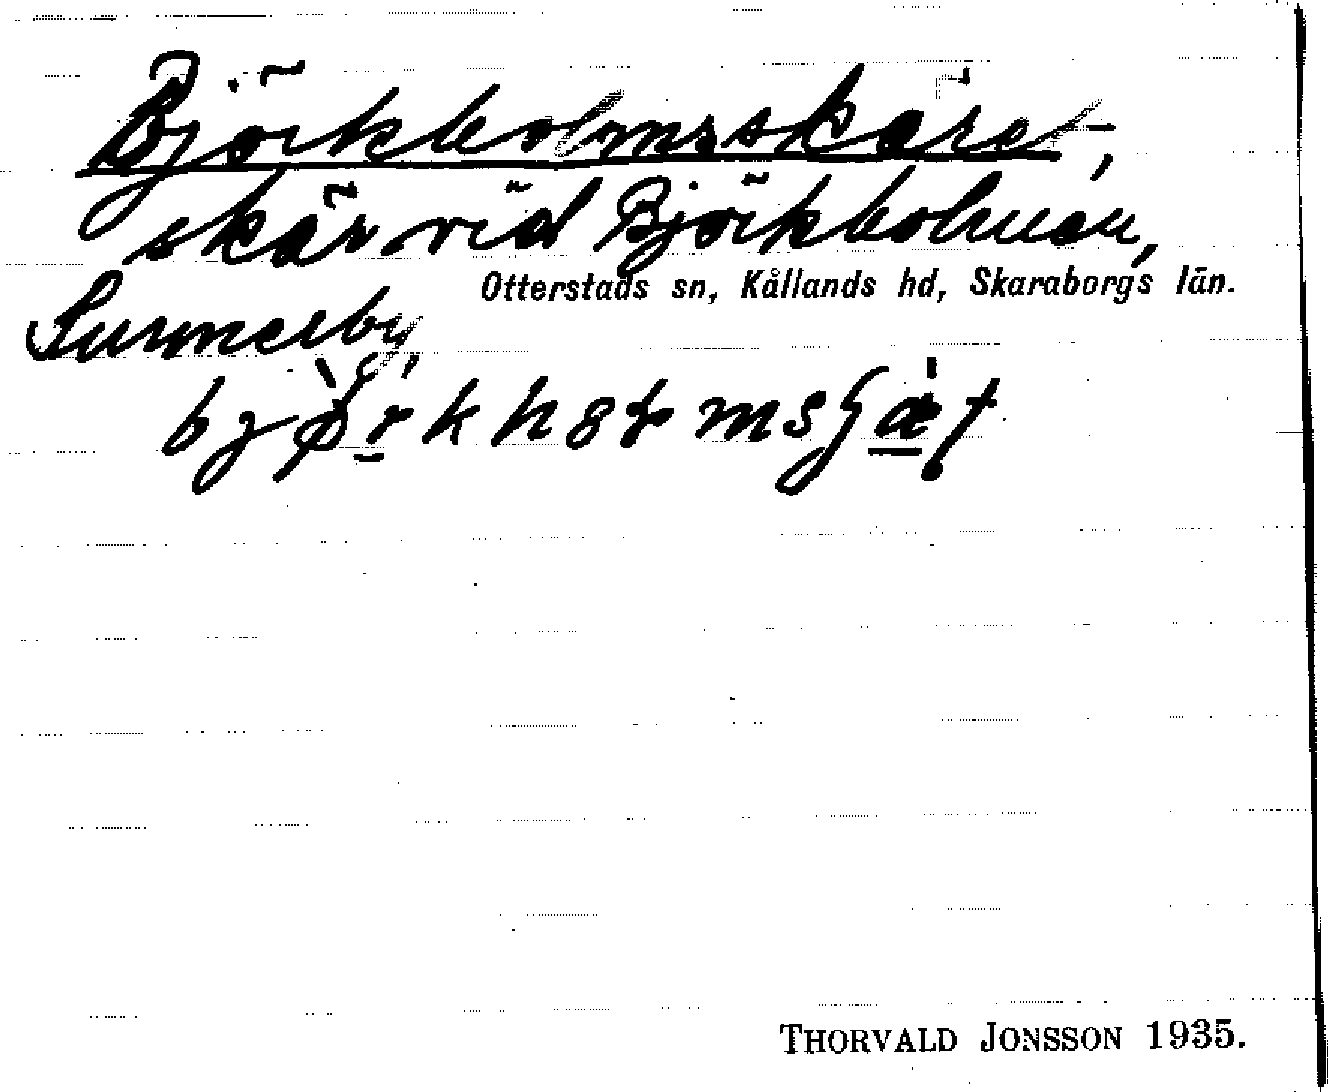 Björkholmsskäret,
skär vid Björkholmen,
Otterstads sn, Kållands hd, Skaraborgs län.
Sunnerby,
THORVALD JONSSON 1935.